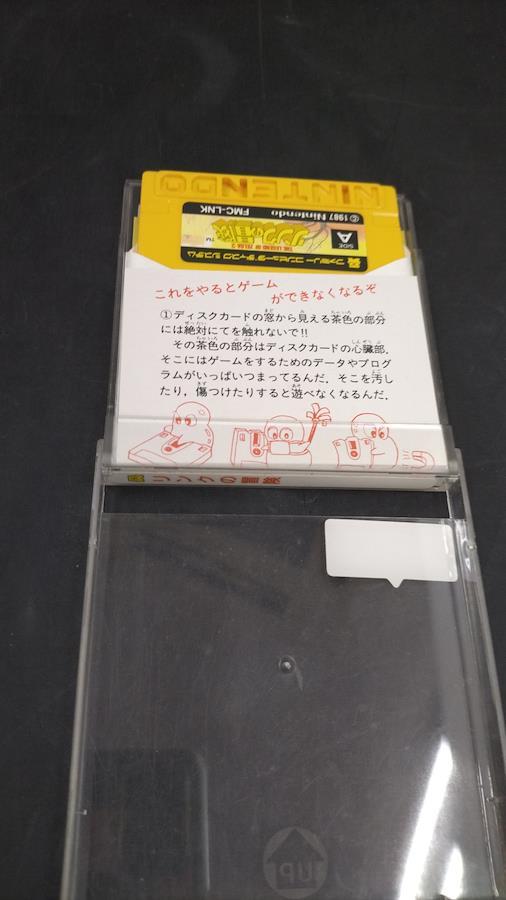 NINTENDO
© 1987 Nintendo
FMC-LNK
SIDE
A
リンクの冒険
TM
THE LEGEND OF ZELDA 2
ファミリー コンピュータ ディスク システム
これをやるとゲーム
ができなくなるぞ
①ディスクカードの窓から見える茶色の部分
には絶対にてを触れないで!!
その茶色の部分はディスクカードの心臓部.
そこにはゲームをするためのデータやプログ
ラムがいっぱいつまってるんだ. そこを汚し
たり, 傷つけたりすると遊べなくなるんだ.
リンクの冒険
UP